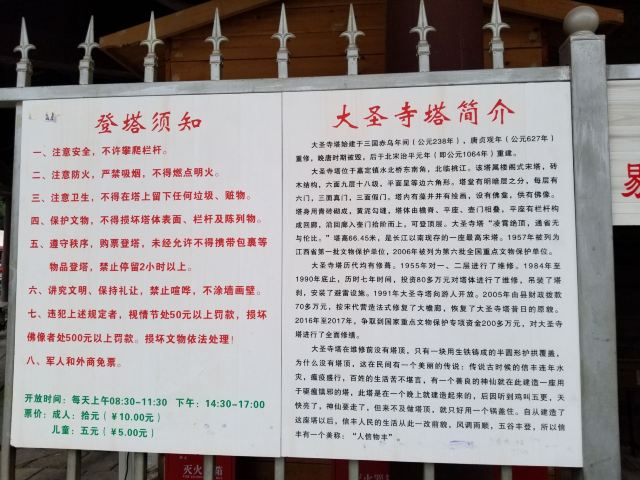 登塔须知
一、注意安全，不许攀爬栏杆。
二、注意防火，严禁吸烟，不得燃点明火。
三、注意卫生，不得在塔上留下任何垃圾、赃物。
四、保护文物，不得损坏塔体表面、栏杆及陈列物。
五、遵守秩序，购票登塔，未经允许不得携带包裹等
物品登塔，禁止停留2小时以上。
六、讲究文明、保持礼让，禁止喧哗，不涂墙画壁。
七、违犯上述规定者，视情节处50元以上罚款，损坏
佛像者处500元以上罚款。损坏文物依法处理！
八、军人和外商免票。
开放时间：每天上午08:30-11:30 下午：14:30-17:00
票价：成人：拾元（￥10.00元）
儿童：五元（￥5.00元）
大圣寺塔简介
大圣寺塔始建于三国赤乌年间（公元238年），唐贞观年（公元627年）
重修，晚唐时期被毁，后于北宋治平元年（即公元1064年）重建。
大圣寺塔位于嘉定镇水北桥东南角，北临桃江。该塔属楼阁式宋塔，砖
木结构，六面九层十八级，平面呈等边六角形。塔堂有明暗层之分，每层有
六门，三面真门，三面假门。塔内有藻井并有绘画，设有佛龛，供有佛像。
塔身用青砖砌成，黄泥勾缝，塔体由檐脊、平座、壶门相叠，平座有栏杆构
成回廊，沿回廊入壶门拾阶而上，可登顶层。大圣寺塔“凌霄绝顶，通省无
与伦比。”塔高66.45米，是长江以南现存的一座最高宋塔。1957年被列为
江西省第一批文物保护单位，2006年被列为第六批全国重点文物保护单位。
大圣寺塔历代均有修葺。1955年对一、二层进行了维修。1984年至
1990年底止，历时七年时间，投资80多万元对塔体进行了维修，吊装了塔
刹，安装了避雷设施。1991年大圣寺塔向游人开放。2005年由县财政拨款
70多万元，按宋代营造法式修复了大檐廊，恢复了大圣寺塔昔日的原貌。
2016年至2017年，争取到国家重点文物保护专项资金200多万元，对大圣寺
塔进行了全面修缮。
大圣寺塔在维修前没有塔顶，只有一块用生铁铸成的半圆形护拱覆盖，
为什么没有塔顶，这在民间有一个美丽的传说：传说古时候的信丰连年水
灾，瘟疫盛行，百姓的生活苦不堪言，有一个善良的神仙就在此建造一座用
于驱瘟镇邪的塔，此塔是在一个晚上就建造起来的，后因听到鸡叫五更，天
快亮了，神仙要走了，但来不及做塔顶，就只好用一个锅盖住。自从建造了
这座塔以后，信丰人民的生活从此一改前貌，风调雨顺，五谷丰登，所以信
丰有一个美称：“人信物丰”
易
灭火 箱